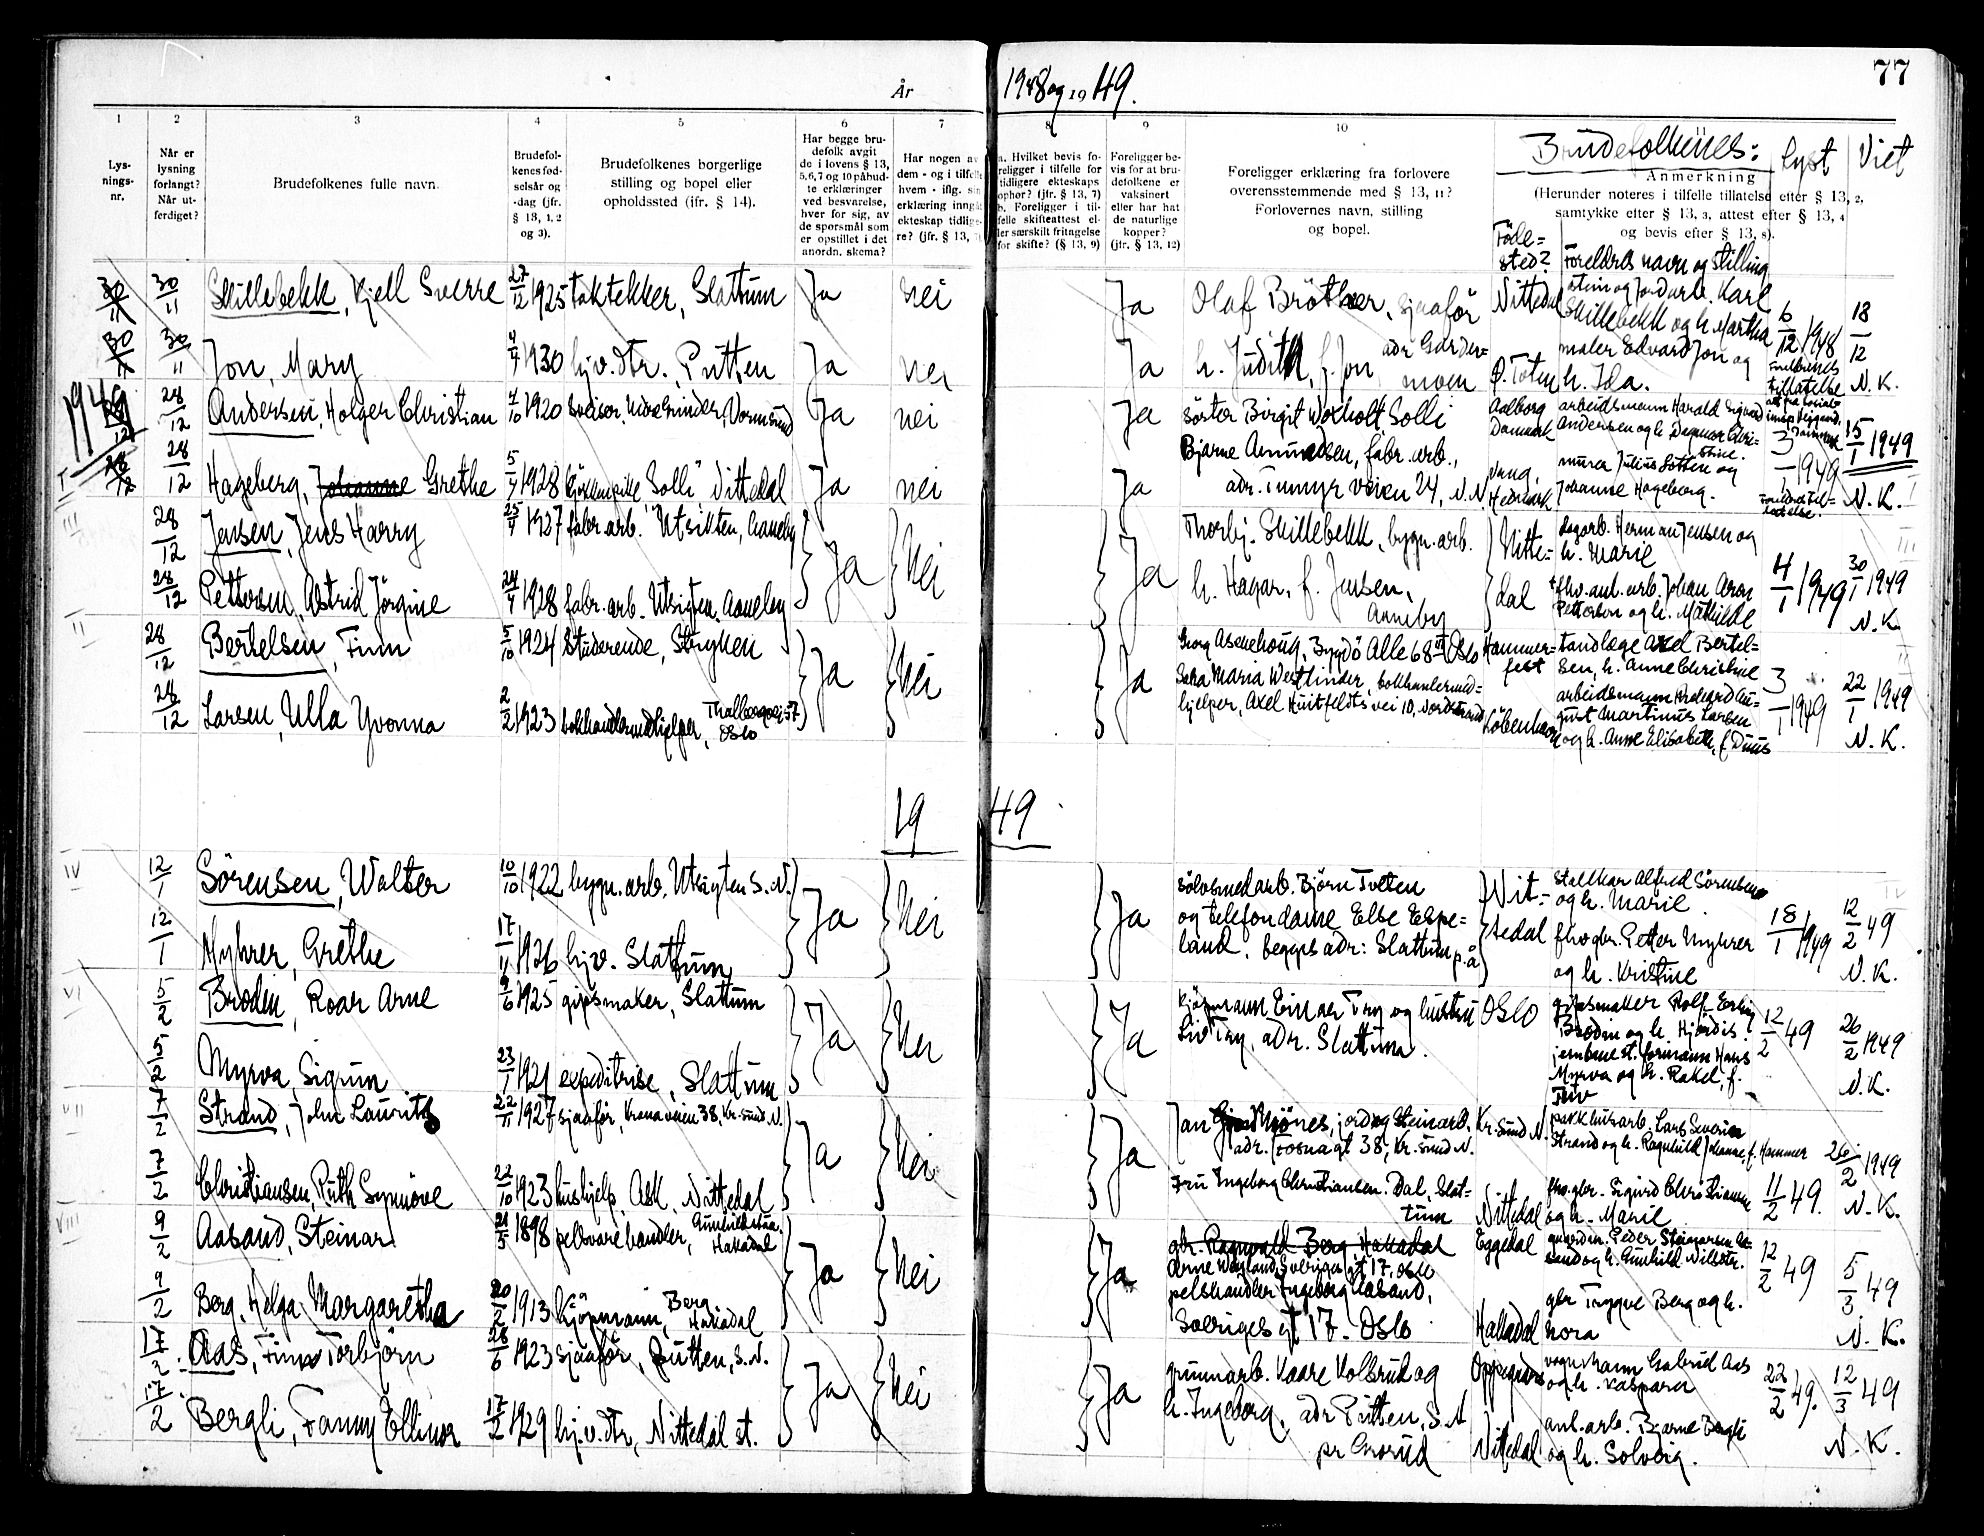 År 1948 og 1949.
77
1 2 3 4 5 6 7 8 9 10 11
Lys-
nings-
nr.
Når er
lysning
forlangt?
Når ut-
ferdiget?
Brudefolkenes fulle navn.
Brudefol-
kenes fød-
selsår og
-dag (jfr.
§ 13, 1, 2
og 3).
Brudefolkenes borgerlige
stilling og bopel eller
opholdssted (ifr. § 14).
Har begge bru-
defolk avgit
de i lovens § 13,
5, 6, 7 og 10 påbud-
te erklæringer
ved besvarelse,
hver for sig, av
de spørsmål som
er opstillet i det
anordn. skema?
Har nogen av
dem - og i tilfelle
hvem - iflg. sin
erklæring inngåt
ekteskap tidlige-
re? (jfr. § 13,
a. Hvilket bevis fo-
religger i tilfelle for
tidligere ekteskaps
ophør? (jfr. § 13, 7)
b. Foreligger i til-
felle skifteattest el-
ler særskilt fritagelse
for skifte? (§ 13, 9)
Foreligger be-
vis for at bru-
defolkene er
vaksinert
eller har hat
de naturlige
kopper?
(jfr. § 13, 12)
Foreligger erklæring fra forlovere
overensstemmende med § 13, 11?
Forlovernes navn, stilling
og bopel.
Brudefolkenes: Lyst Viet
Anmerkning
(Herunder noteres i tilfelle tillatelse efter § 13, 2,
samtykke efter § 13, 3, attest efter § 13, 4
og bevis efter § 13, 8).
Føde-
sted? Foreldres navn og stilling
30/11 30/11 Skillebekk, Kjell Sverre 27/12 1925 taktekker, Slattum Ja nei Ja Olaf Bröther, sjaafør Nittedal
sten og jordarb. Karl
Skillebekk og h. Martha 6/12 1948 18/12
30/11 30/11 Jon, Mary 4/4 1930 hjv. dtr., Rotten Ja nei Ja h. Judith, f. Jon adr. Garder-
moen Ø. Toten
maler Edvard Jon og
h. Ida. Foreldrenes
tillatelse N. K.
1949
28/12 28/12 Andersen, Holger Christian 4/10 1920 Vormsund Ja nei Ja søster Birgit Woxholt, Solli Aalborg
Danmark
arbeidsmann Harald Sigvard
Andersen og h. Dagmar Chri-
stine. 3/1 1949 15/1 1949
I 28/12 28/12 Hageberg, Johanne Grethe 5/7 1928 kjøkkenpike "Solli" Nittedal Ja nei Ja Bjarne Amundsen, fabr. arb.,
adr. Tumyrveien 24, N.N. Vang,
Hedmark
murer Julius Sotten og
Johanne Hageberg. N. K. I
III 28/12 Jensen, Jens Harry 25/4 1927 fabr. arb. Utsikten, Aaneby Ja Nei Ja Thorbj. Skillebekk, bygn. arb.
h. Hagar, f. Jensen,
Aaneby Nitte-
dal
dagarb. Herman Jensen og
h. Marie 4/1 1949 30/1 1949 III
28/12 Pettersen, Astrid Jörgine 24/4 1928 fabr. arb. Utsigten, Aaneby
fhv. anl. arb. Johan Aron
Pettersen og h. Mathilde N. K.
II 28/12 Bertelsen, Finn 5/10 1924 Studerende, Stryken Ja Nei Ja Georg Aschehoug, Bygdö Alle 68 III Oslo Hammer-
fest
tandlæge Axel Bertel-
sen, h. Anne Christine 3/1 1949 22/1 1949 II
28/12 Larsen, Ulla Yvonna 2/2 1923 bokhandlermedhjelper, Oslo
Maria Westlinder, bokhanlermed-
hjelper, Axel Huitfeldts vei 10, Nordstrand Köbenhavn
arbeidsmann August Martinus Larsen
og h. Anne Elisabeth, f. Duus N. K.
1949
IV 12/1 Sörensen, Walter 10/10 1922 bygn. arb. Utsigten S. N. Ja Nei Ja sölvsmedarb. Björn Tveten
og telefondame Else Espe-
land. begges adr: Slattum p.å. Nit-
tedal
stallkar Alfred Sörensen
og h. Marie 18/1 1949 12/2 49 IV
12/1 Myhrer, Grethe 17/11 1926 hjv. Slattum
fhv. gbr. Petter Myhrer
og h. Kristine N. K.
VI 5/2 Brodin, Roar Arne 9/6 1925 gipsmaker, Slattum Ja Nei Ja kjöpmann Einar Try og hustru
Liv Try, adr. Slattum. Oslo
gipsmaker Rolf Erling
Brodin og h. Hjördis. 12/2 49 26/2 1949
5/2 Myrva, Sigrun 23/1 1921 expeditrise, Slattum
jernbanest. formann Hans
Myrva og h. Rakel, f.
N. K.
VII 7/2 Strand, John Laurits 22/11 1927 sjaafør, Kranaveien 38, Kr.sund N. Ja Nei Ja Jan Mjönes, jord og Steinarb.
adr. Fosnagt 38, Kr. sund N. Kr. Sund N.
pakkhusarb. Lars Severin
Strand og h. Ragnhild Johanne, f. Hammer 26/2 1949
7/2 Christiansen, Ruth Synnöve 22/10 1923 hushjelp, Ask, Nittedal
Fru Ingeborg Christiansen. Dal, Slat-
tum Nittedal
fhv. gbr. Sigurd Christiansen
og h. Marie 11/2 49. N. K.
VIII 9/2 Aasand, Steinar 21/5 1898 pelsvarehandler, Hakadal Ja Nei Ja gbr. Ragnvald Berg, Hakadal
Arne Sverigesgt 17, Oslo
pelshandler Ingeborg Aasand,
Sveriges gt 17. Oslo Eggedal
Peder Steinarsen Aa-
sand og h. Gunhild Nilsdtr. 12/2 49 5/3 49
9/2 Berg, Helga Margaretha 20/2 1913 kjöpmann, Berg
Hakadal Hakadal
gbr Trygve Berg og h.
Nora N. K.
17/2 Aas, Finn Torbjörn 28/6 1923 sjaaför, Rotten, S. N. Ja Nei Ja grunnarb. Kaare Kolsrud og
h. Ingeborg, adr Rotten, S. N
pr Grorud Oppegård
vognmann Gabriel Aas
og h. Kaspara 22/2 49. 12/3 49
17/2 Bergli, Fanny Ellinor 17/2 1929 hj. v. dtr, Nittedal st. Nittedal
anl. arb. Bjarne Bergli
og h. Solveig. N. K.